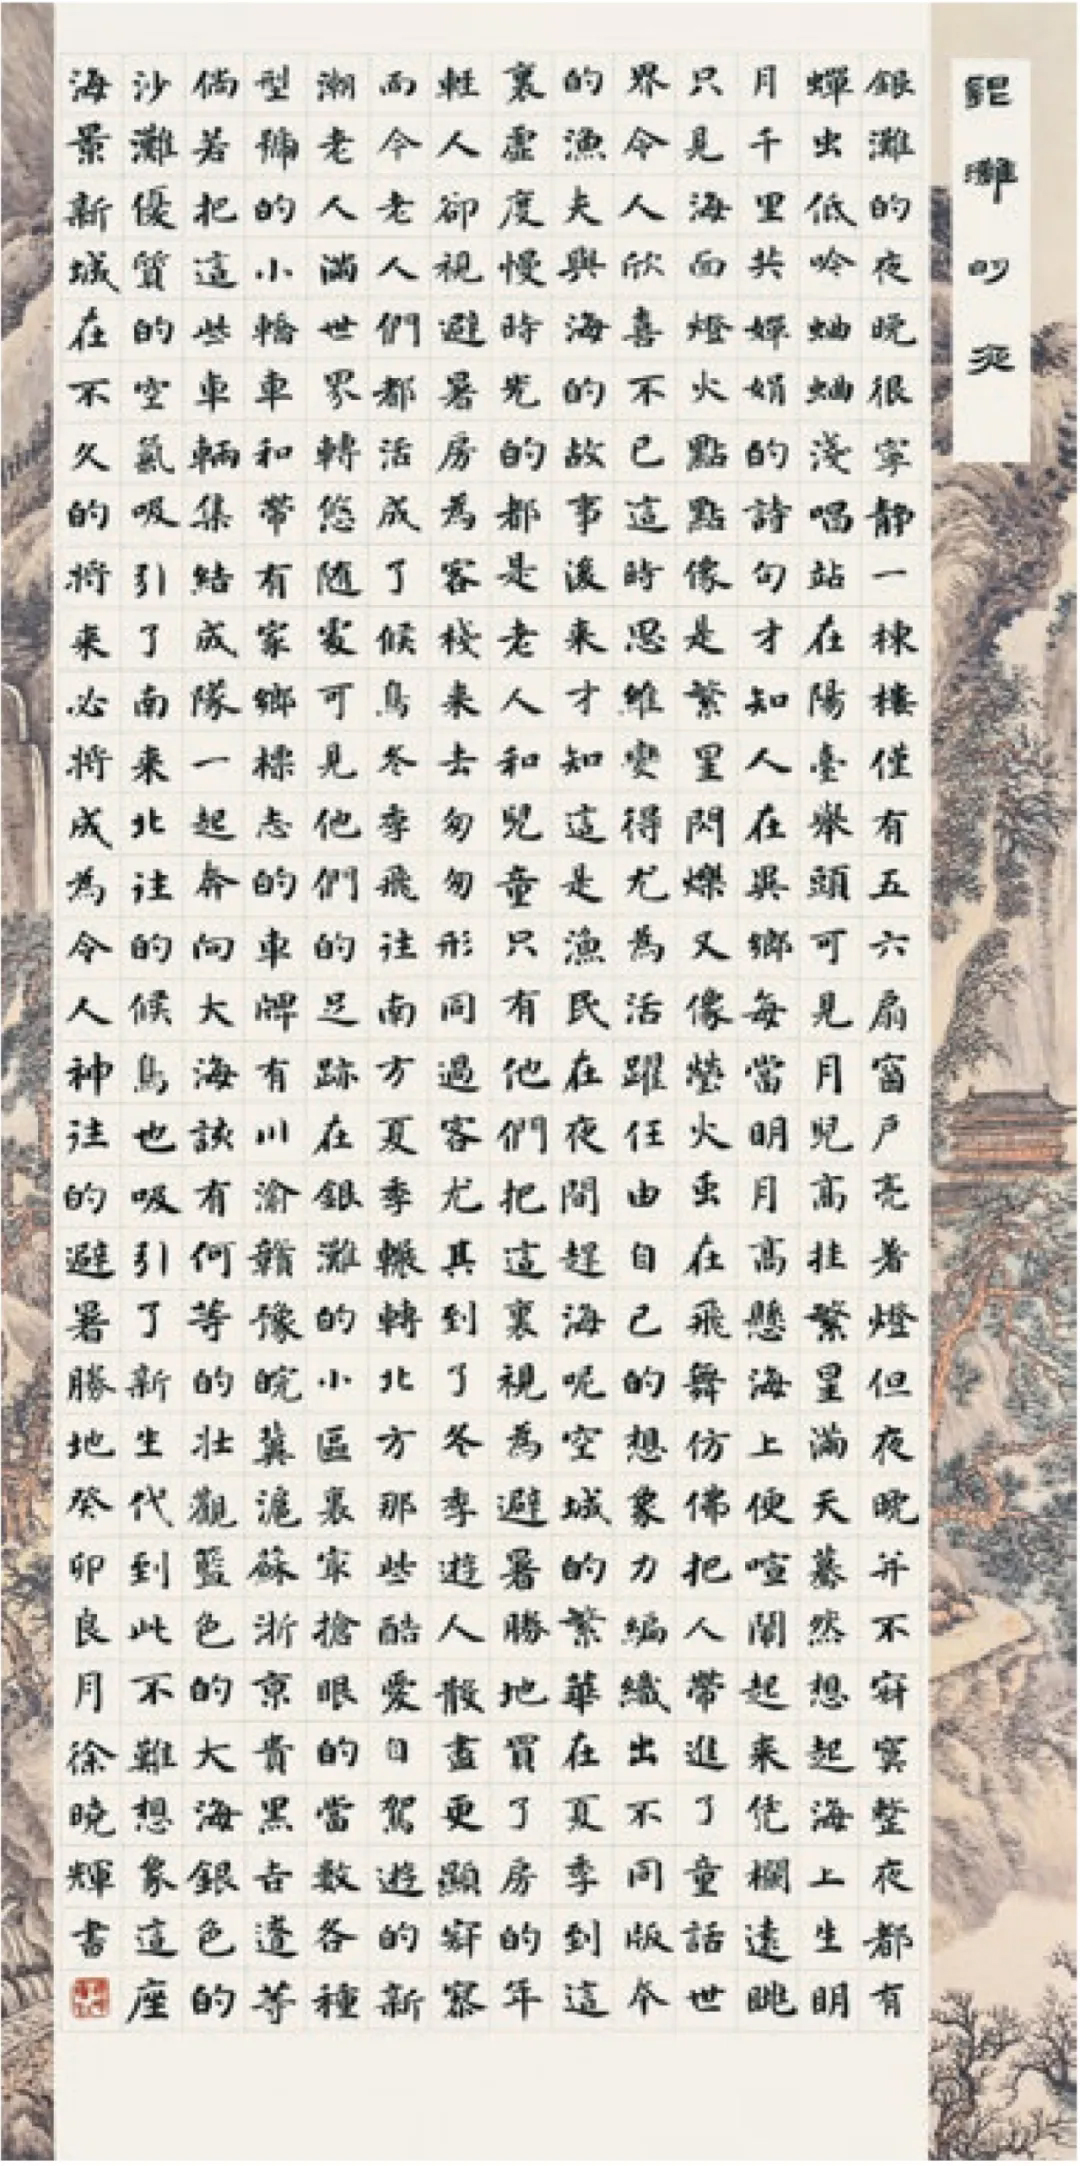 銀灘的夜
銀灘的夜晚很寧靜一棟樓僅有五六扇窗戶亮著燈但夜晚并不寂寞整夜都有
蟬虫低吟蛐蛐淺唱站在陽臺舉頭可見月兒高挂繁星滿天驀然想起海上生明
月千里共嬋娟的詩句才知人在異鄉每當明月高懸海上便喧鬧起來凭欄遠眺
只見海面燈火點點像是繁星閃爍又像螢火虫在飛舞仿佛把人帶進了童話世
界令人欣喜不已這時思維變得尤為活躍任由自己的想象力編織出不同版本
的漁夫與海的故事後来才知這是漁民在夜間趕海呢空城的繁華在夏季到這
裏虛度慢時光的都是老人和兒童只有他們把這裏視為避暑勝地買了房的年
輕人卻視避暑房為客棧来去匆匆形同過客尤其到了冬季遊人散盡更顯寂寥
而今老人們都活成了候鳥冬季飛往南方夏季輾轉北方那些酷愛自駕遊的新
潮老人滿世界轉悠随處可見他們的足跡在銀灘的小區裏最搶眼的當數各種
型號的小轎車和帶有家鄉標志的車牌有川渝贛豫皖冀滬蘇浙京貴黑吉遼等
倘若把這些車輛集結成隊一起奔向大海該有何等的壯觀籃色的大海銀色的
沙灘優質的空氣吸引了南來北往的候鳥也吸引了新生代到此不難想象這座
海景新城在不久的將来必將成為令人神往的避暑勝地癸卯良月徐曉輝書